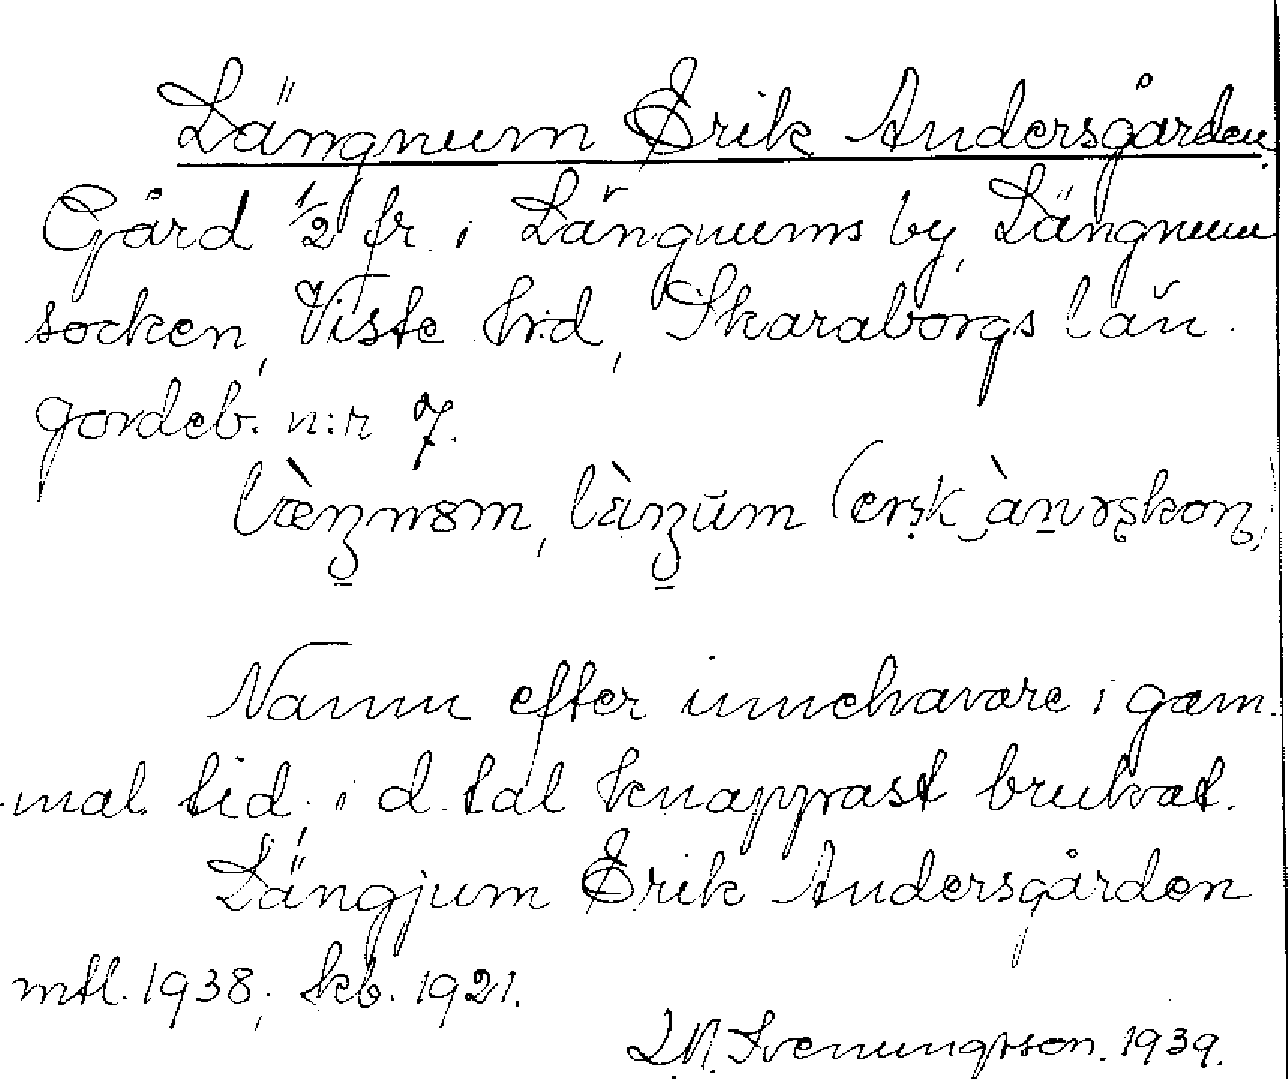 Längnum Erik Andersgården.
Gård 1/2 fr. i Längnums by, Längnum
socken, Viste hrd, Skaraborgs län.
jordeb. n:r 7.
Namn efter innehavare i gam-
mal tid; i d. tal knappast brukat.
Längjum Erik Andersgården
mtl. 1938; kb. 1921.
Svenungsson. 1939.